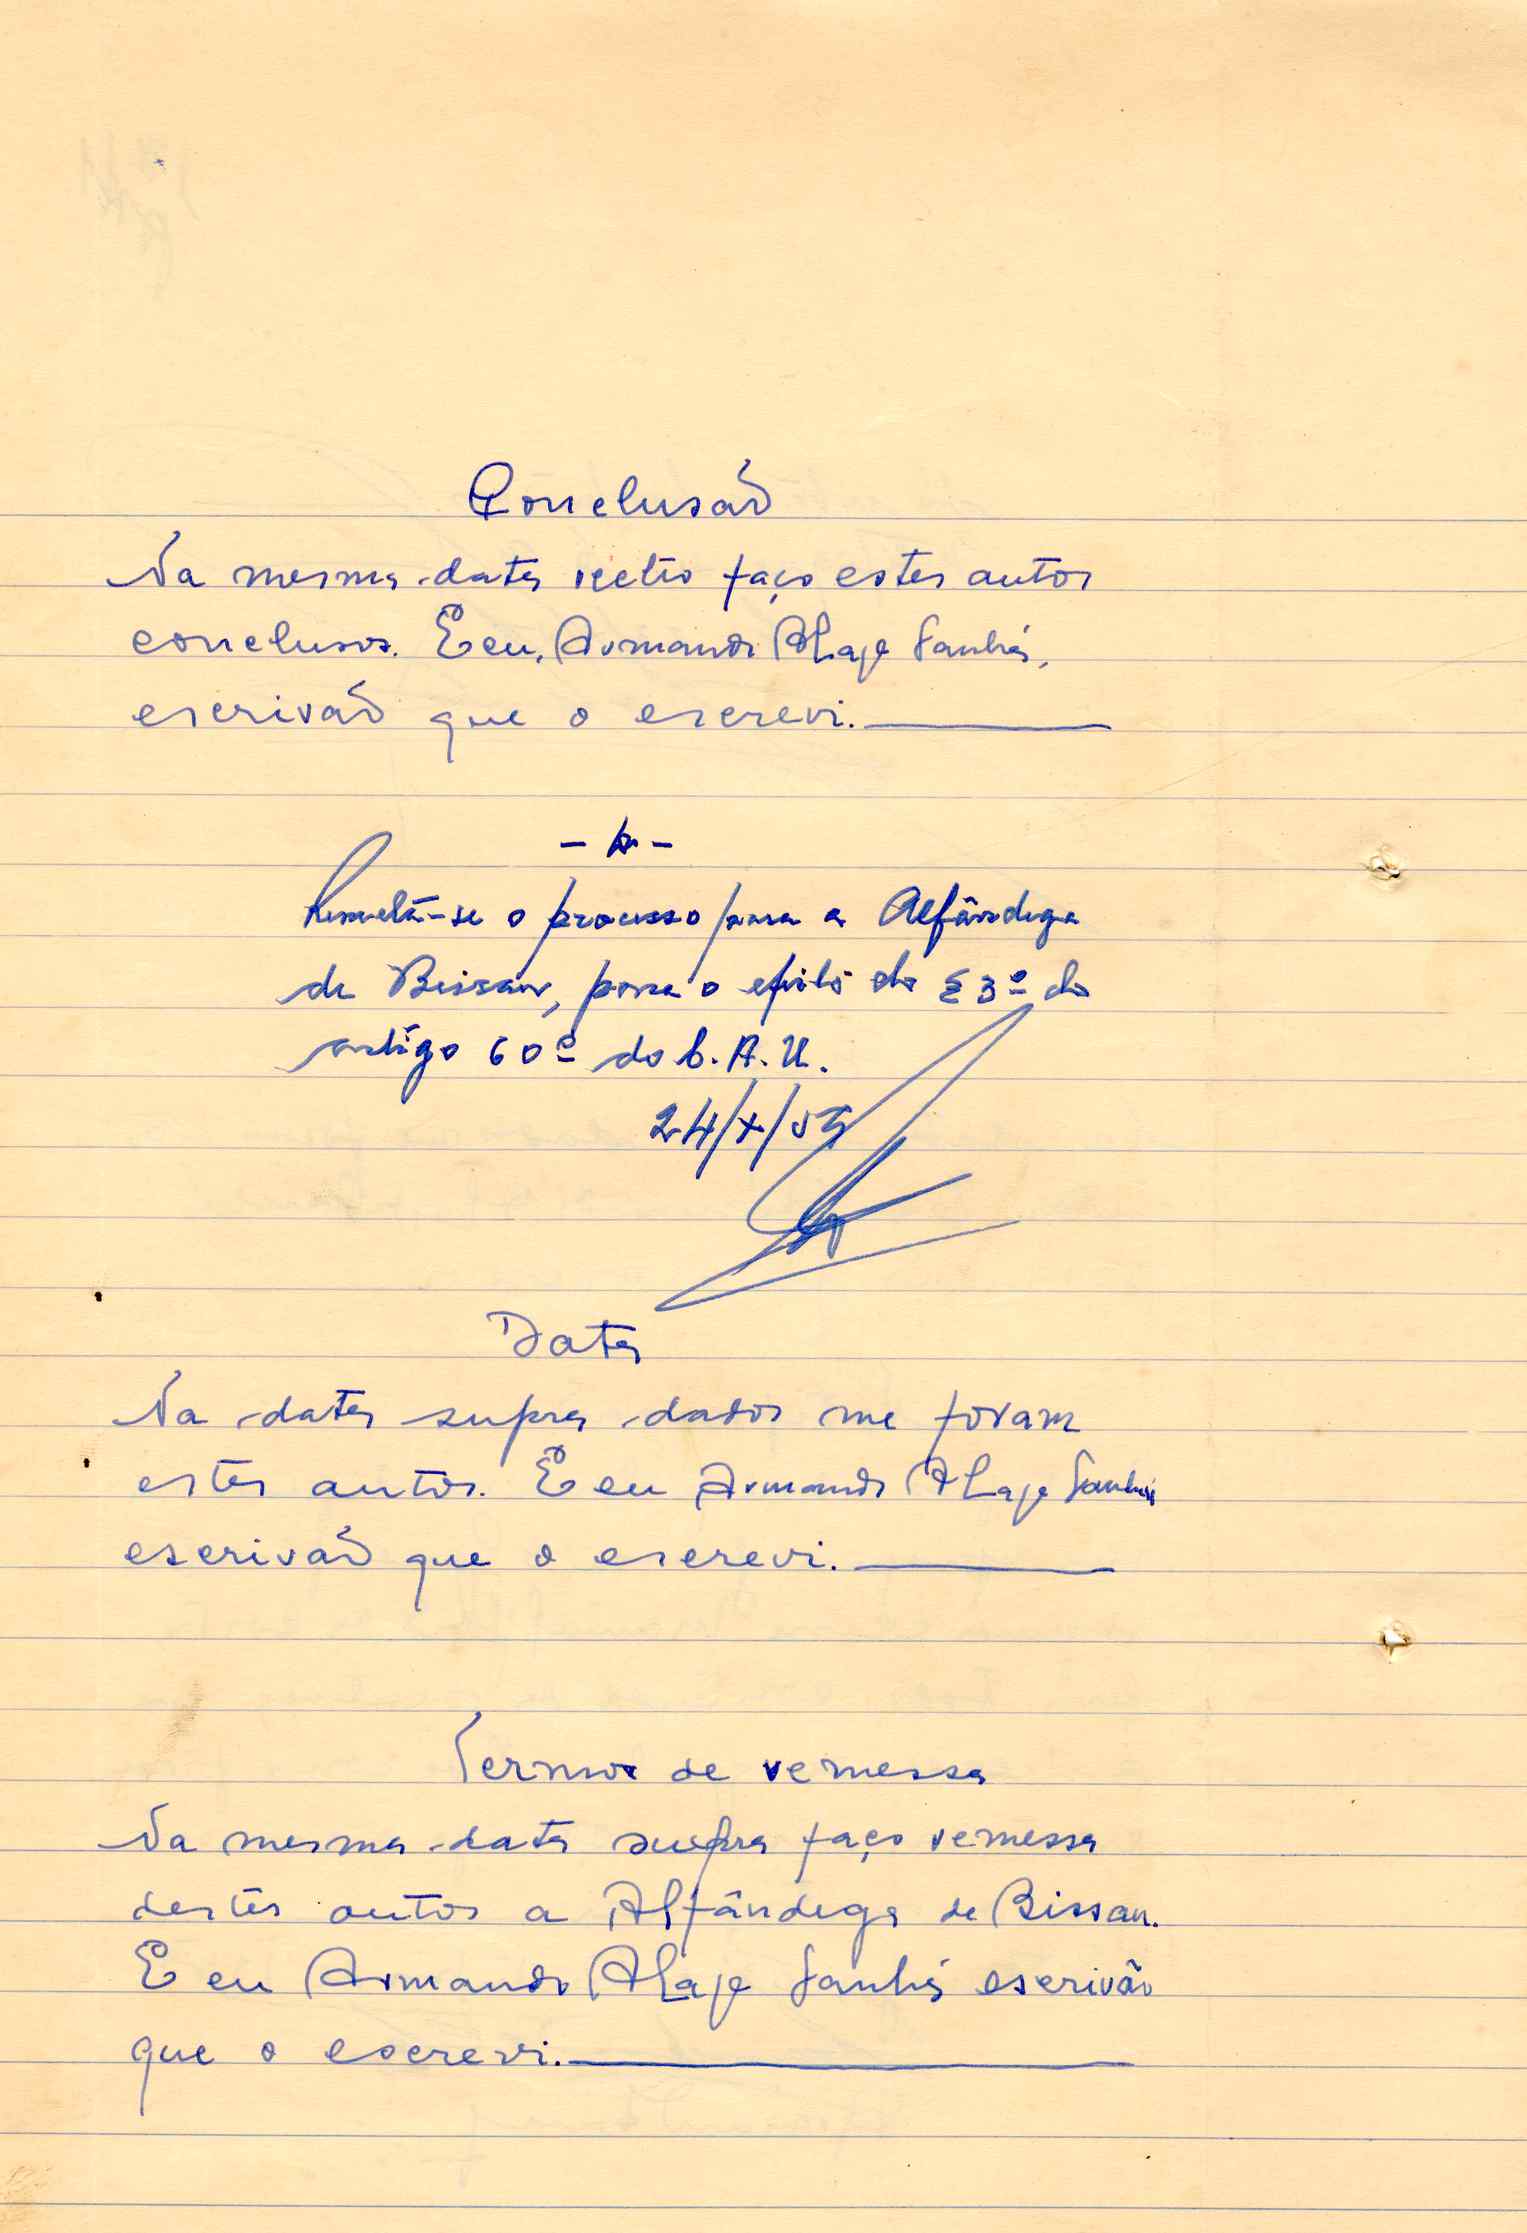 Conclusão
Na mesma data retro faço estes autos
conclusos. E eu, Armando ALage Sanhá,
escrivão que o escrevi.
Remetā-se o processo para a Alfândega
de Bissau, para o efeito do § 3º do
artigo 60º do C. A. U.
24/X/
Data
Na data supra dados me foram
estes autos. E eu Armando ALage Sanhá
escrivão que o escrevi.
Termos de remessa
Na mesma data supra faço remessa
destes autos a Alfândega de Bissau.
E eu Armando ALage Sanhá escrivão
que o escrevi.